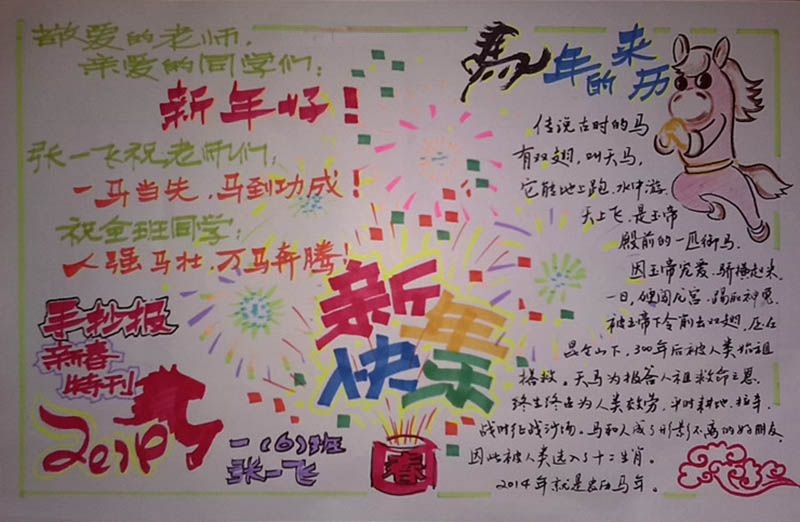 敬爱的老师，
亲爱的同学们：
新年好！
张一飞祝老师们：
一马当先，马到功成！
祝全班同学：
人强马壮，万马奔腾！
手抄报
新春
特刊
2014
一（6）班
张一飞
新年
快乐
春
馬年的来历
传说古时的马
有双翅，叫天马，
它能地上跑，水中游，
天上飞，是玉帝
殿前的一匹御马，
因玉帝宠爱，骄横起来，
一日，硬闯龙宫，踢死神兔，
被玉帝下令削去双翅，压在
昆仑山下，300年后被人类始祖
拯救。天马为报答人祖救命之恩，
终生终世为人类效劳，平时耕地、拉车，
战时征战沙场。马和人成了形影不离的好朋友，
因此被人类选入了十二生肖。
2014年就是农历马年。